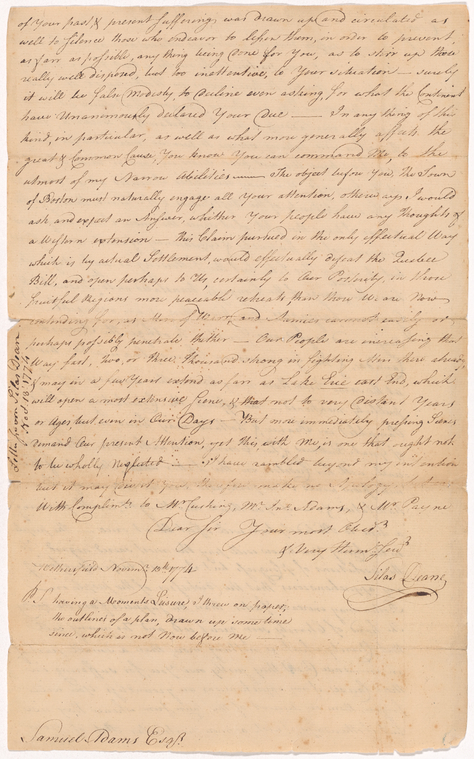 of Your past & present Sufferings was drawn up and circulated as
well to Silence those who endeavor to lessen them, in order to prevent
as far as possible, any thing being done for You, as to stir up those
really well disposed, but too inattentive, to Your situation — surely
it will be false Modesty, to decline even asking, for what the Continent
have Unanimously declared Your Due — In any thing of this
kind, in particular, as well as what more generally affects the
great & Common Cause, You know You can command Me, to the
utmost of my Narrow Abilities — The object before You, The Town
of Boston must naturally engage all Your attention, otherways I would
ask and expect an Answer, whether Your people have any Thoughts of
a Western extension — this Claim pursued in the only effectual Way
which is by actual Settlement, would effectually defeat the Quebec
Bill, and open perhaps to Us, certainly to Our Posterity, in those
fruitful Regions more peaceable retreats than those We are Now
contending for, as Men of Warr, and Armies cannot easily or
perhaps possibly penetrate thither — Our People are increasing that
Way fast, Two, or three, Thousand strong in fighting Men there already
& may in a few Years extend as far as Lake Erie east End, which
will open a most extensive Scene, & that not to very Distant Years
or Ages but even in Our Days — But more immediately pressing Scenes
demand Our present Attention, yet this with Me, is one that ought not
to be wholly Neglected — I have rambled beyond my intention
but it may
With Compliments to Mr Cushing, Mr Jno Adams, & Mr Payne
Dear Sir Your most Obedt
& Very Humb Servt
Silas Deane
Wethersfield Novemr 13th 1774
P.S. having a Moments Leisure, I threw on paper,
the outlines of a plan, drawn up some time
since, which is not Now before me —
Samuel Adams Esqr
Letter from Silas Dean
Novr 13 1774